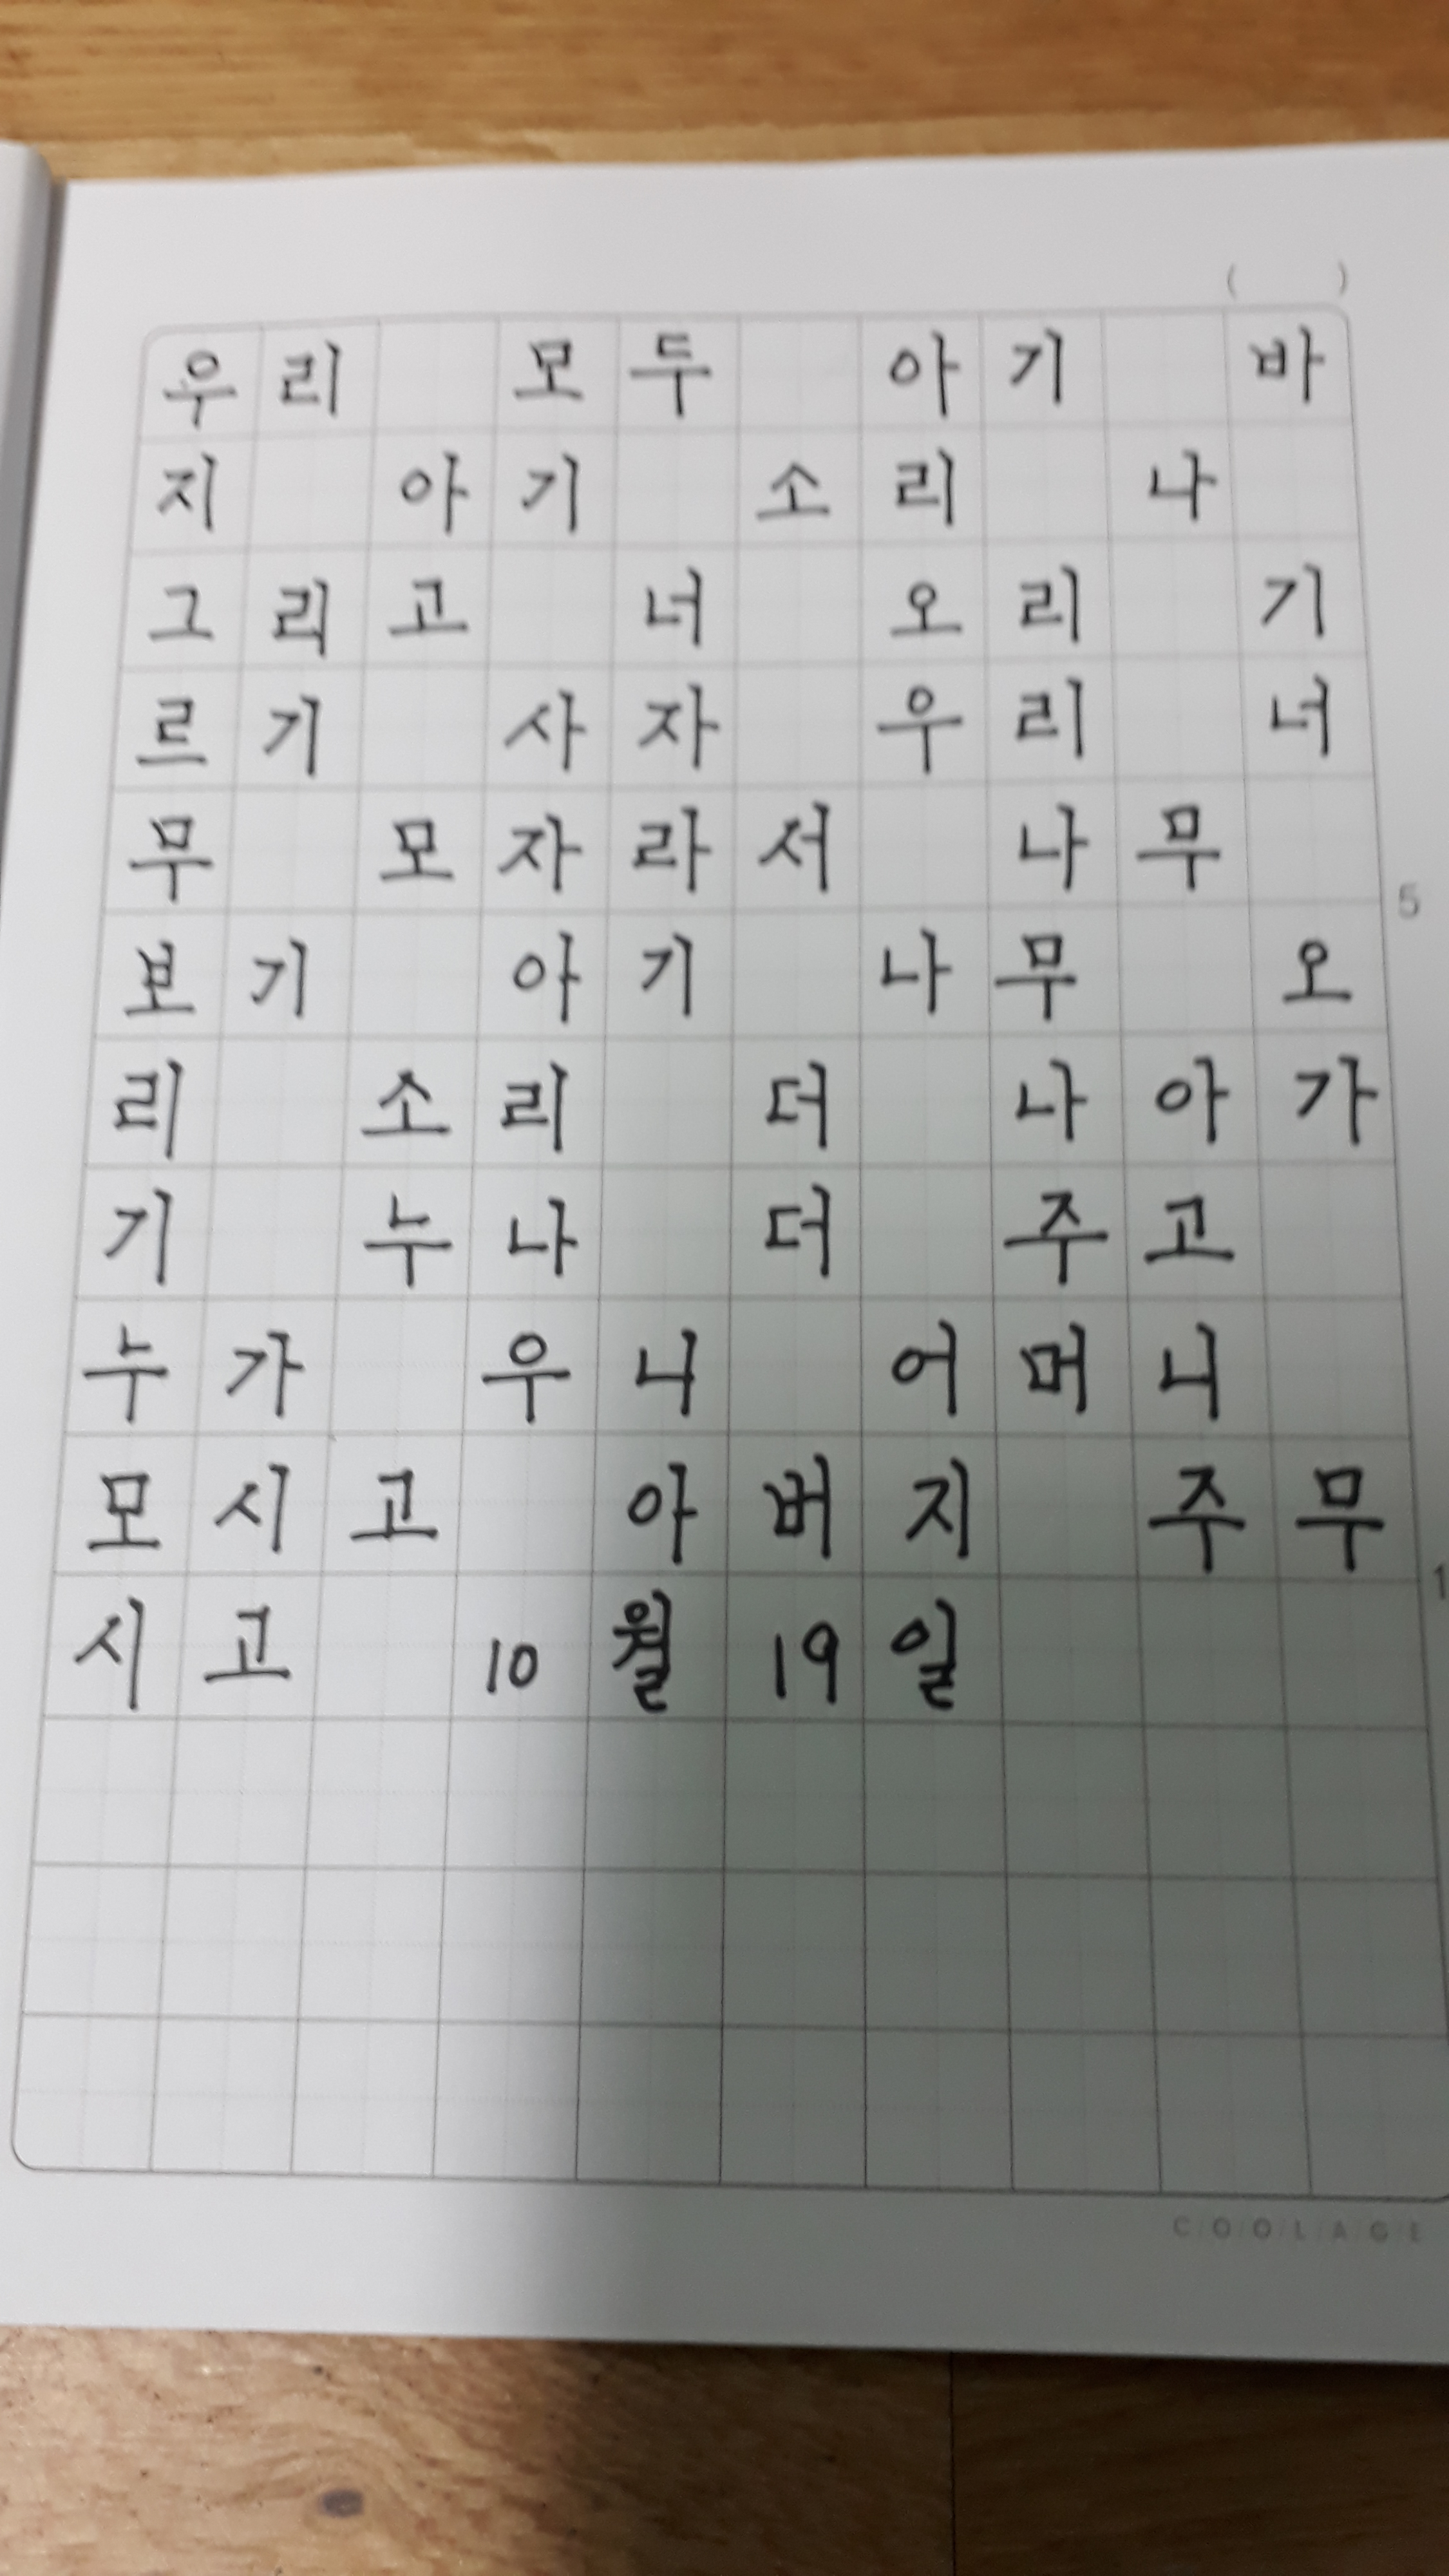 (   )
우리 모두 아기 바
지 아기 소리 나
그리고 너 오리 기
르기 사자 우리 너
무 모자라서 나무
5
보기 아기 나무 오
리 소리 더 나아가
기 누나 더 주고
누가 우니 어머니
모시고 아버지 주무
1
시고 10월 19일
COOLAGE